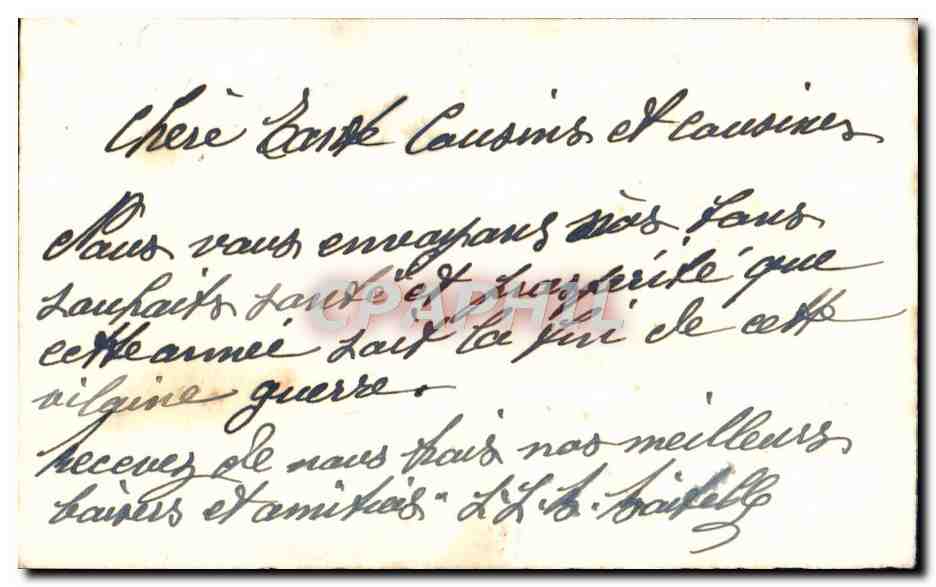 Chère Tante Cousins et cousines
Nous vous envoyons nos bons
souhaits santé et prospérité que
cette année soit la fin de cette
vilaine guerre.
recevez de nous trois nos meilleurs
baisers et amitiés
CPAPHIL